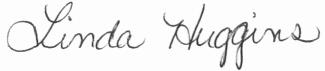 Linda Huggins